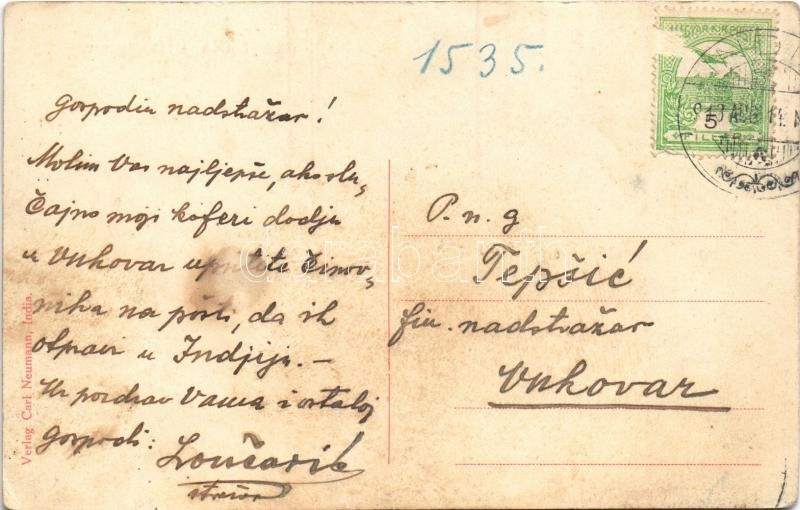 1535.
MAGYAR KIR. POSTA
5
FILLÉR
Gospodin nadstražar!
Molim Vas najljepše, ako slu-
čajno moji koferi dodju
u Vukovar uputite činov-
nika na pošti, da ih
otpravi u Indjiju. —
Uz pozdrav Vama i ostaloj
gospodi:
Lončarić
P. n. g
Tepšić
fin. nadstražar
Vukovar
Verlag Carl Neumann, India.
darabanth